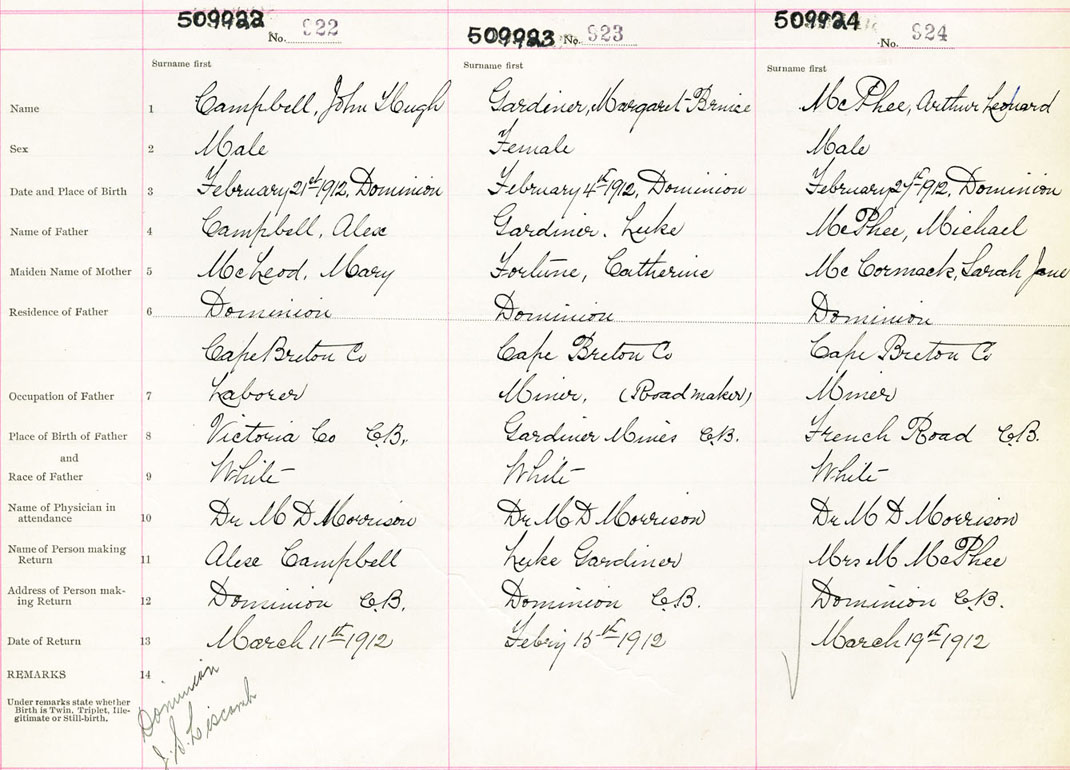 509922 509923 509924
No. 922 No. 923 No. 924
Surname first Surname first Surname first
Name 1 Campbell, John Hugh Gardiner, Margaret Brnice McPhee, Arthur Leonard
Sex 2 Male Female Male
Date and Place of Birth 3 February 21st 1912, Dominion February 4th 1912, Dominion February 27th 1912, Dominion
Name of Father 4 Campbell, Alex Gardiner. Luke McPhee, Michael
Maiden Name of Mother 5 McLeod, Mary Fortune, Catherine McCormack, Sarah Jane
Residence of Father 6 Dominion Dominion Dominion
Cape Breton Co Cape Breton Co Cape Breton Co
Occupation of Father 7 Laborer Miner, (Roadmaker) Miner
Place of Birth of Father 8 Victoria Co C.B. Gardiner Mines C.B. French Road C.B.
and
Race of Father 9 White White White
Name of Physician in
attendance 10 Dr M D Morrison Dr M D Morrison Dr M D Morrison
Name of Person making
Return 11 Alex Campbell Luke Gardiner Mrs M McPhee
Address of Person mak-
ing Return 12 Dominion C.B. Dominion C.B. Dominion C.B.
Date of Return 13 March 11th 1912 Febry 15th 1912 March 19th 1912
REMARKS 14
Under remarks state whether
Birth is Twin, Triplet, Ille-
gitimate or Still-birth.
Dominion
J. S. Liscomb